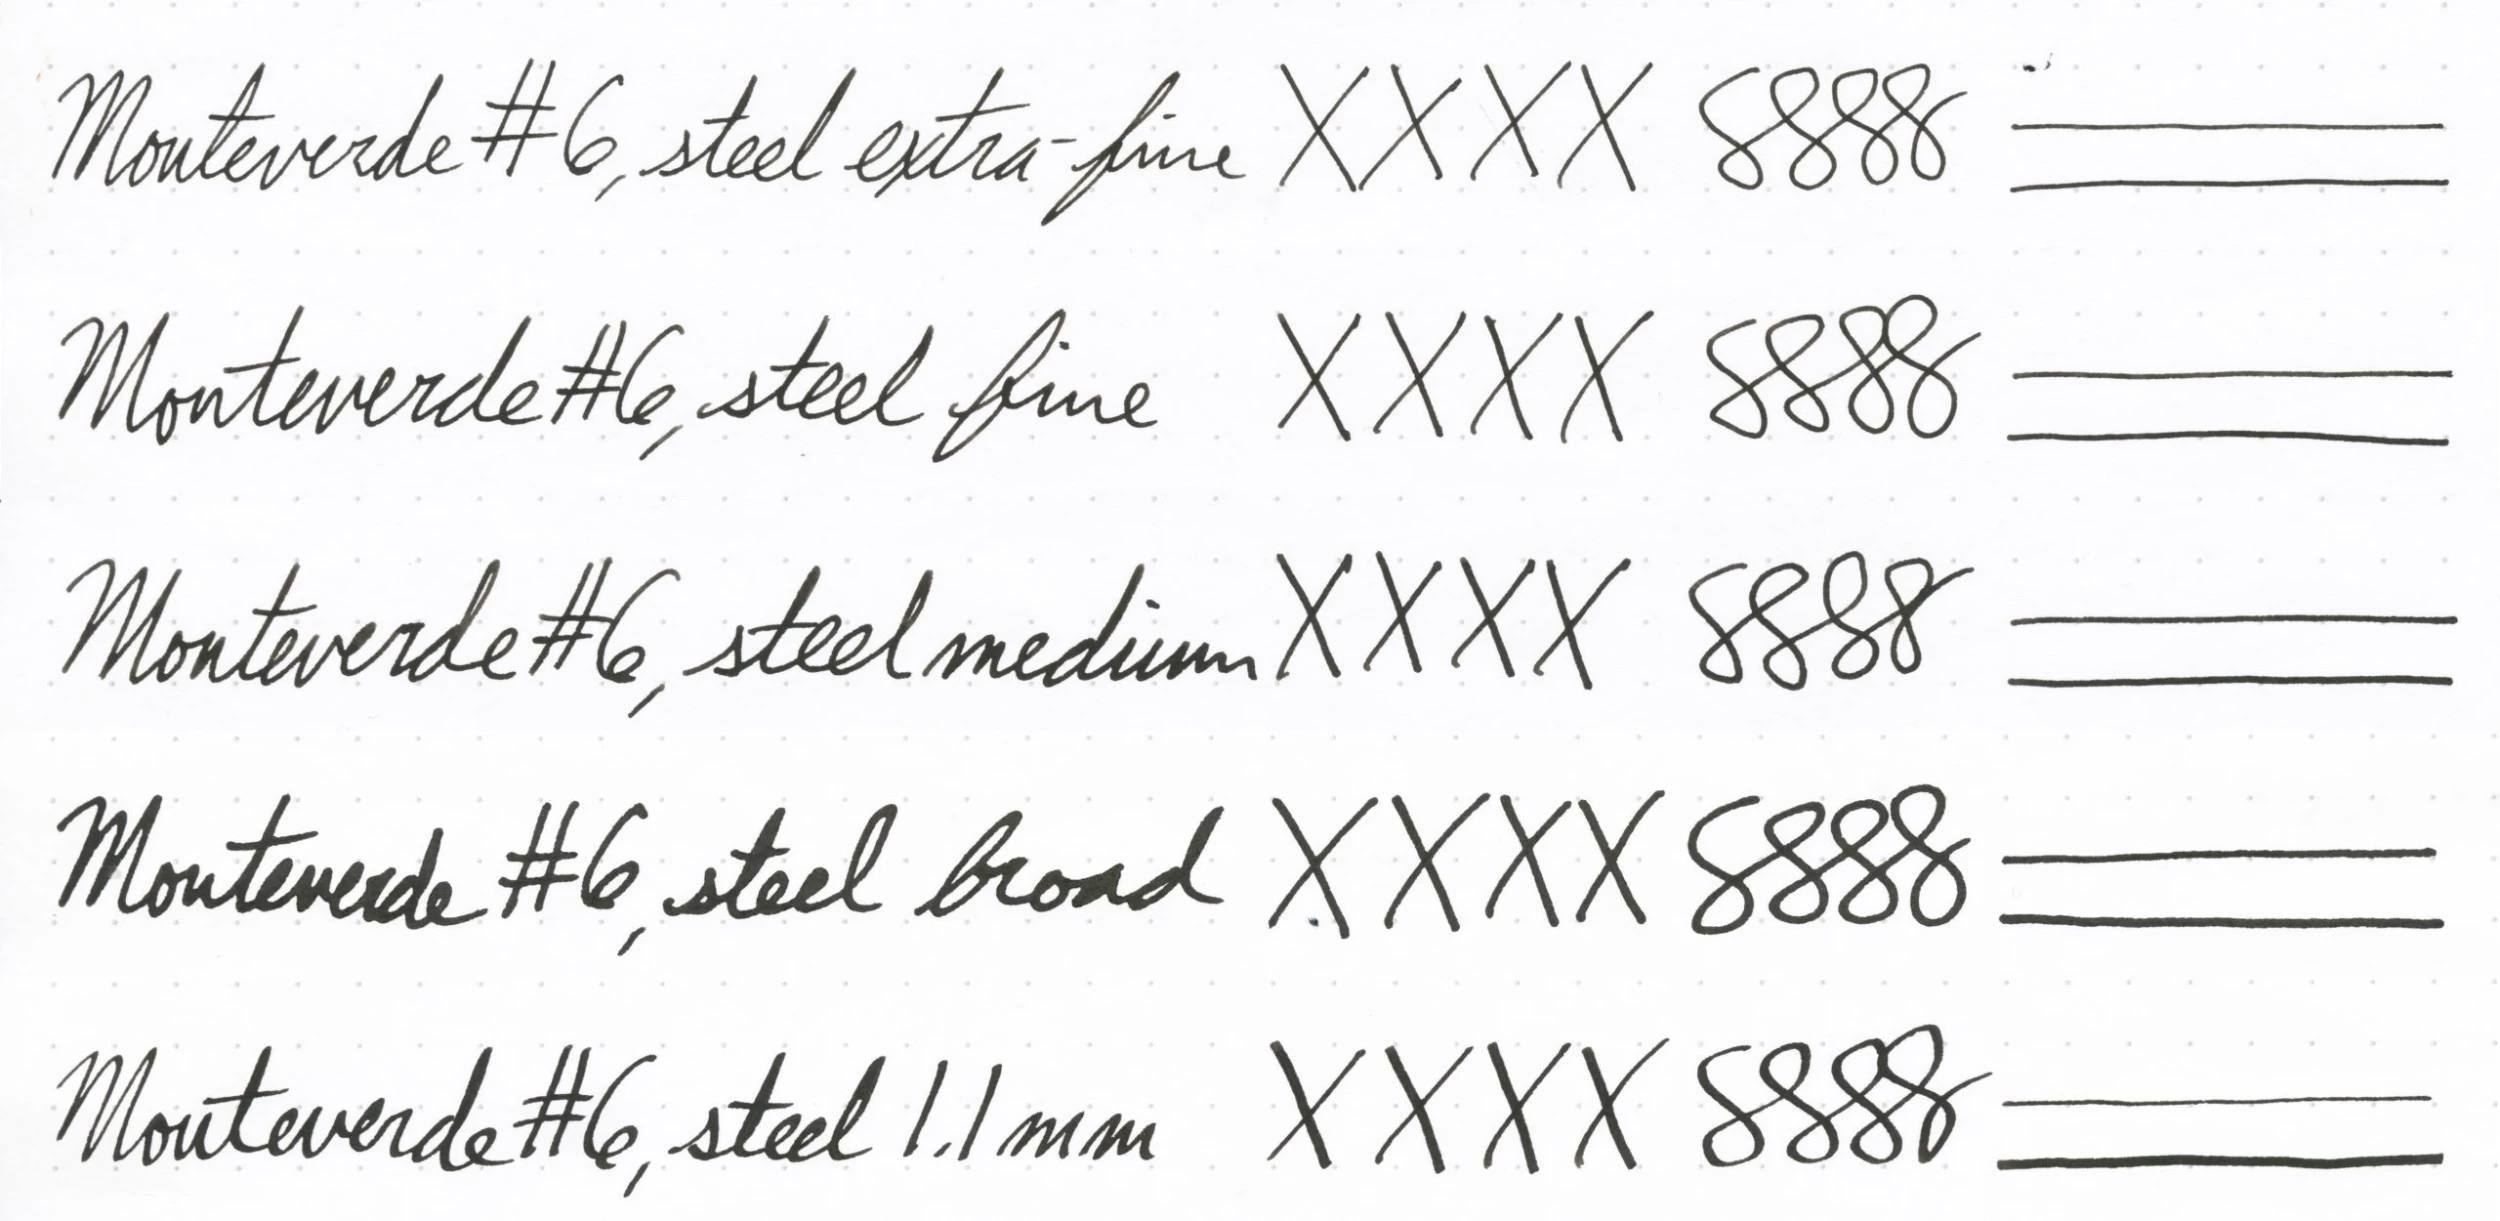 Monteverde #6, steel extra-fine XXXX 8888
Monteverde #6, steel fine XXXX 8888
Monteverde #6, steel medium XXXX 8888
Monteverde #6, steel broad XXXX 8888
Monteverde #6, steel 1.1mm XXXX 8888